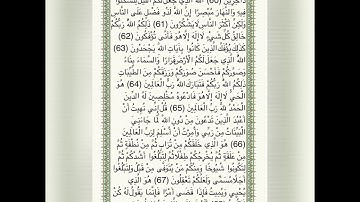 دَاخِرِينَ (60) اللَّهُ الَّذِي جَعَلَ لَكُمُ اللَّيْلَ لِتَسْكُنُوا
فِيهِ وَالنَّهَارَ مُبْصِرًا إِنَّ اللَّهَ لَذُو فَضْلٍ عَلَى النَّاسِ
وَلَكِنَّ أَكْثَرَ النَّاسِ لَا يَشْكُرُونَ (61) ذَلِكُمُ اللَّهُ رَبُّكُمْ
خَالِقُ كُلِّ شَيْءٍ لَا إِلَهَ إِلَّا هُوَ فَأَنَّى تُؤْفَكُونَ (62)
كَذَلِكَ يُؤْفَكُ الَّذِينَ كَانُوا بِآيَاتِ اللَّهِ يَجْحَدُونَ (63)
اللَّهُ الَّذِي جَعَلَ لَكُمُ الْأَرْضَ قَرَارًا وَالسَّمَاءَ بِنَاءً
وَصَوَّرَكُمْ فَأَحْسَنَ صُوَرَكُمْ وَرَزَقَكُمْ مِنَ الطَّيِّبَاتِ
ذَلِكُمُ اللَّهُ رَبُّكُمْ فَتَبَارَكَ اللَّهُ رَبُّ الْعَالَمِينَ (64) هُوَ
الْحَيُّ لَا إِلَهَ إِلَّا هُوَ فَادْعُوهُ مُخْلِصِينَ لَهُ الدِّينَ
الْحَمْدُ لِلَّهِ رَبِّ الْعَالَمِينَ (65) قُلْ إِنِّي نُهِيتُ أَنْ
أَعْبُدَ الَّذِينَ تَدْعُونَ مِنْ دُونِ اللَّهِ لَمَّا جَاءَنِيَ
الْبَيِّنَاتُ مِنْ رَبِّي وَأُمِرْتُ أَنْ أُسْلِمَ لِرَبِّ الْعَالَمِينَ
(66) هُوَ الَّذِي خَلَقَكُمْ مِنْ تُرَابٍ ثُمَّ مِنْ نُطْفَةٍ ثُمَّ
مِنْ عَلَقَةٍ ثُمَّ يُخْرِجُكُمْ طِفْلًا ثُمَّ لِتَبْلُغُوا أَشُدَّكُمْ ثُمَّ
لِتَكُونُوا شُيُوخًا وَمِنْكُمْ مَنْ يُتَوَفَّى مِنْ قَبْلُ وَلِتَبْلُغُوا
أَجَلًا مُسَمًّى وَلَعَلَّكُمْ تَعْقِلُونَ (67) هُوَ الَّذِي
يُحْيِي وَيُمِيتُ فَإِذَا قَضَى أَمْرًا فَإِنَّمَا يَقُولُ لَهُ كُنْ